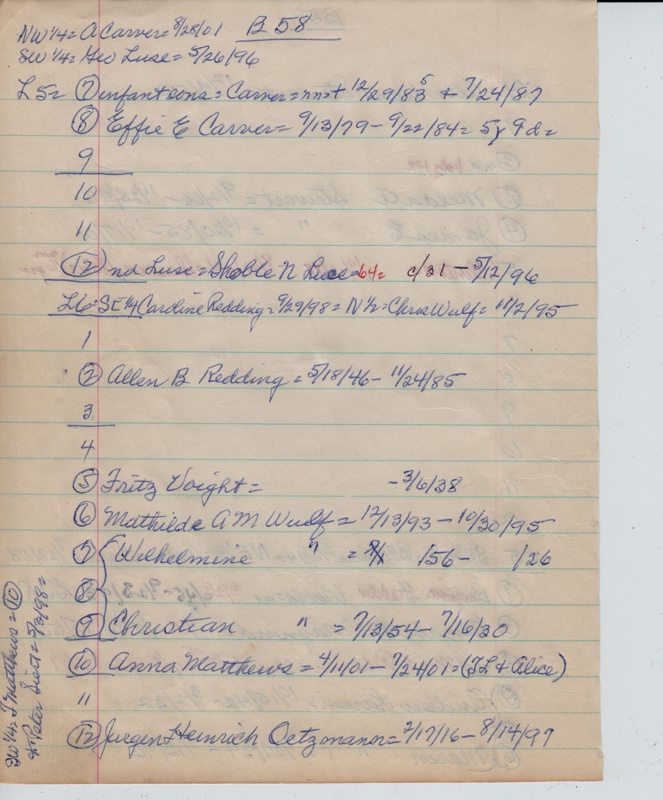 NW 1/4 = A Carver = 8/28/01 B 58
SW 1/4 = Geo Luse = 5/26/96
L 5 = 7 infant sons = Carver = nn = + 12/29/83 & 7/24/87
8 Effie E Carver = 9/13/79 - 9/22/84 = 5y 9d =
9
10
11
12 nd Luse = Shoble N Luse = 64 = c/31 - 5/12/96
L6 = SE 1/4 Caroline Redding = 9/29/98 = N 1/2 = Chris Wulf = 11/2/95
1
2 Allen B Redding = 5/18/46 - 11/24/85
3
4
5 Fritz Voight = - 3/6/38
6 Mathilde A M Wulf = 12/13/93 - 10/30/95
7 Wilhelmine " = /56 - /26
8
9 Christian " = 7/13/54 - 7/16/30
10 Anna Matthews = 4/11/01 - 7/24/01 = (JL & Alice)
11
12 Jurgen Heinrich Oetzmann = 2/17/16 - 8/14/97
SW 1/4 = J Matthews = 10
Peter = 5/9/98 =